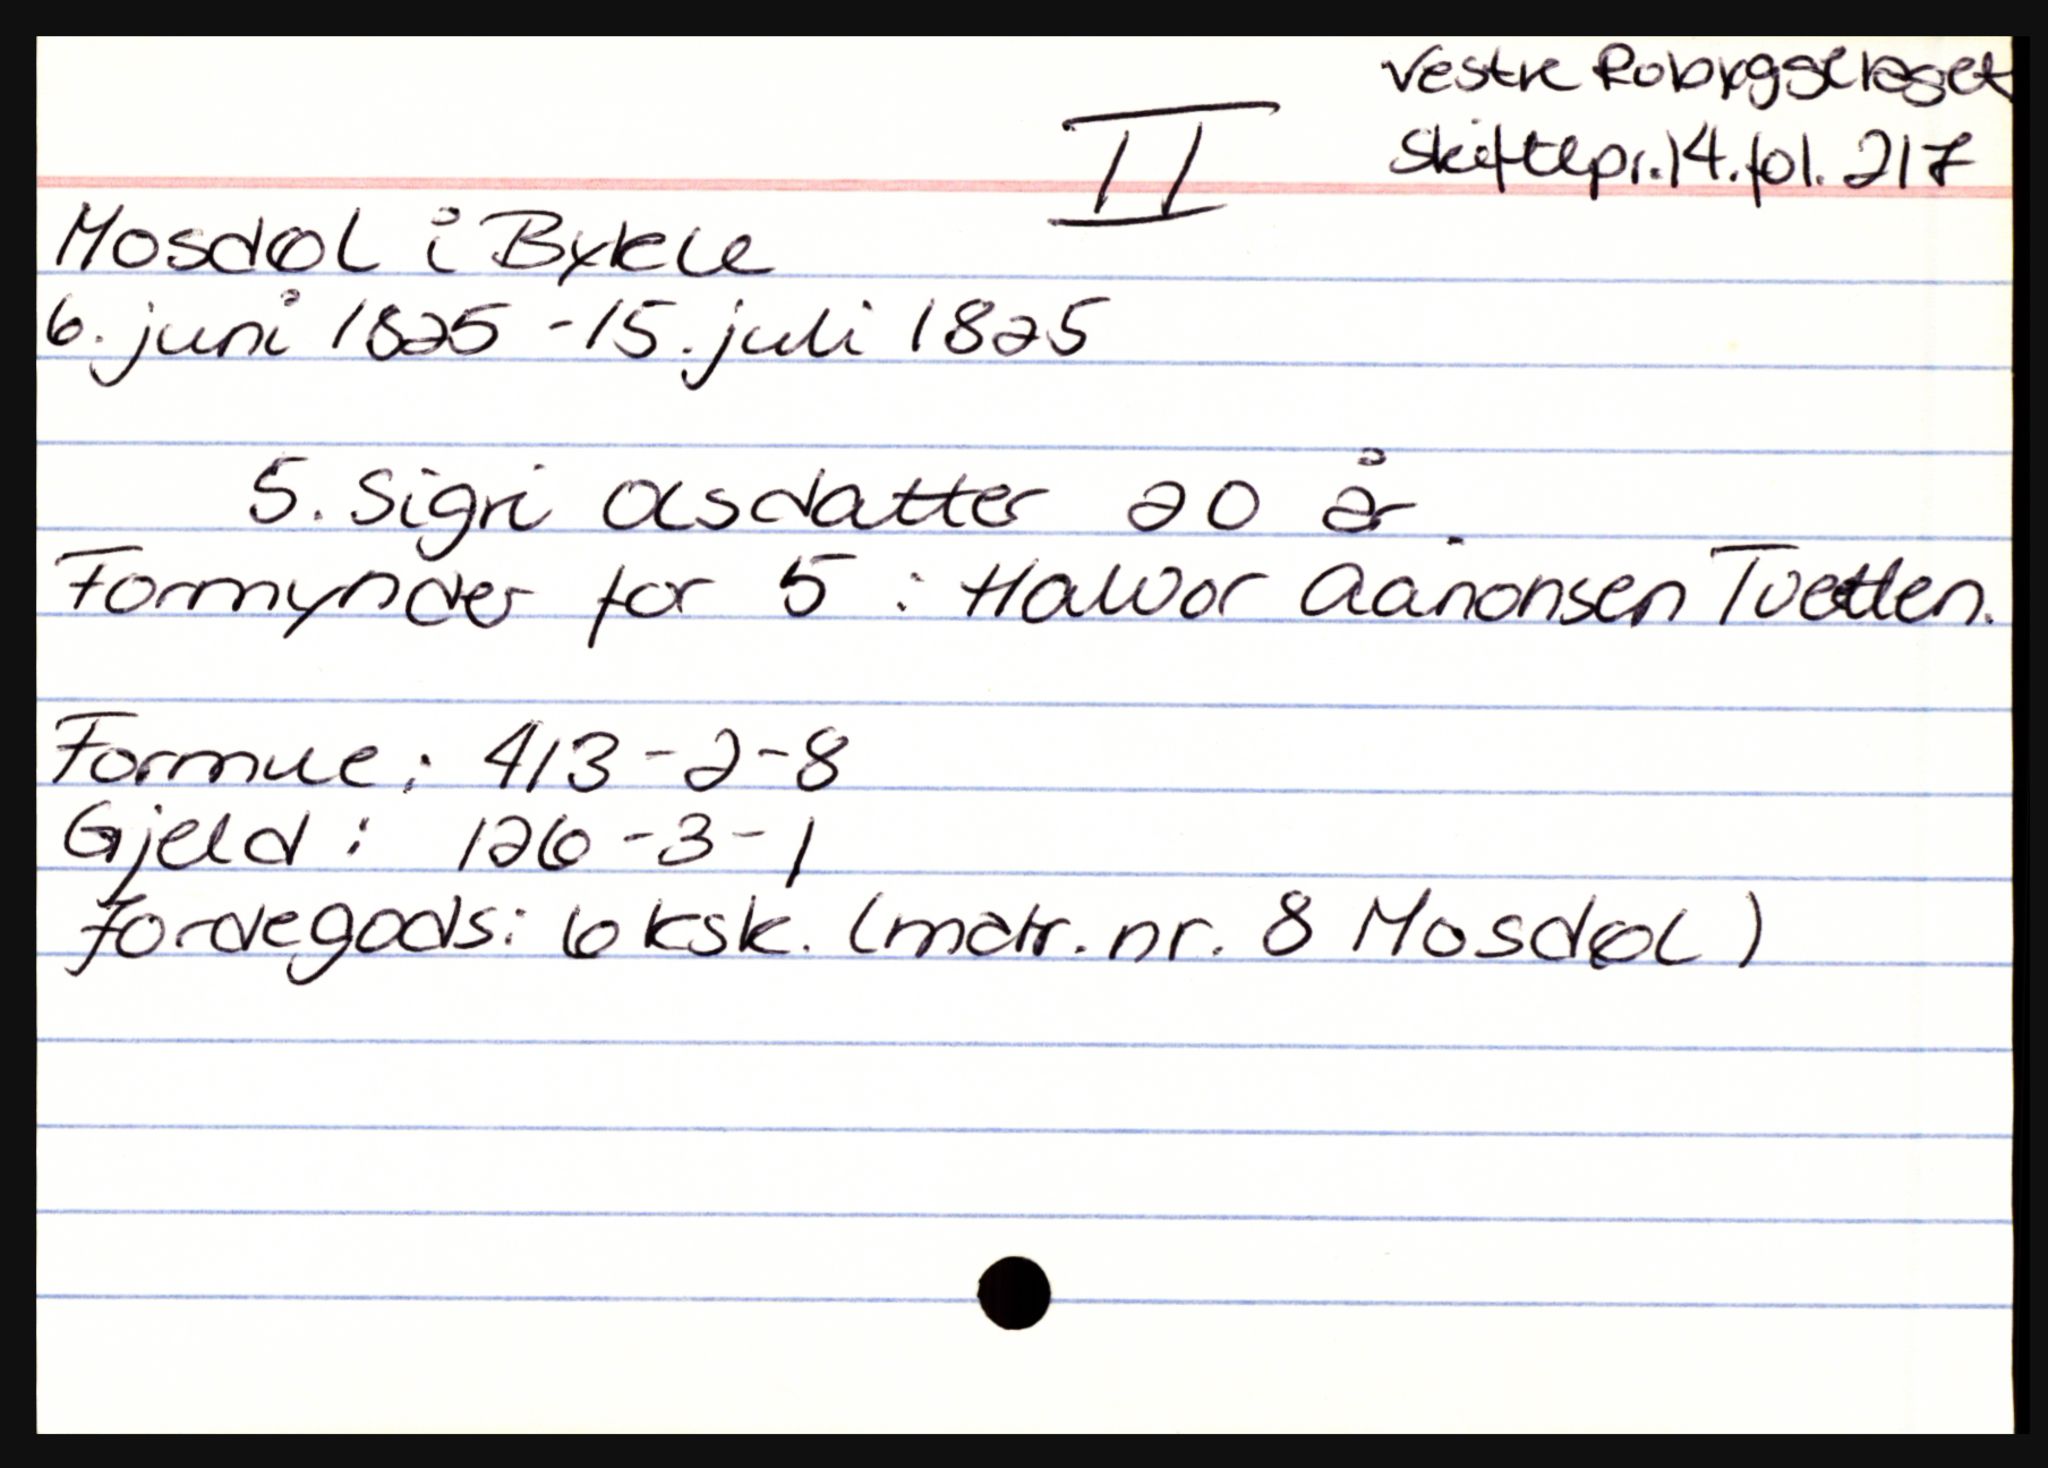 Vestre Robyggelaget
Skiftepr. 14. fol. 217
II
Mosdøl i Bykle
6. juni 1825 - 15. juli 1825
5. Sigri Olsdatter 20 år.
Formynder for 5 : Halvor Aanonsen Tvetten.
Formue: 413-2-8
Gjeld: 126-3-1
Jordegods: 6 ksk. (matr. nr. 8 Mosdøl)